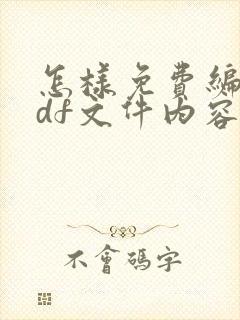 怎樣免費編
df文件内容
不會碼字